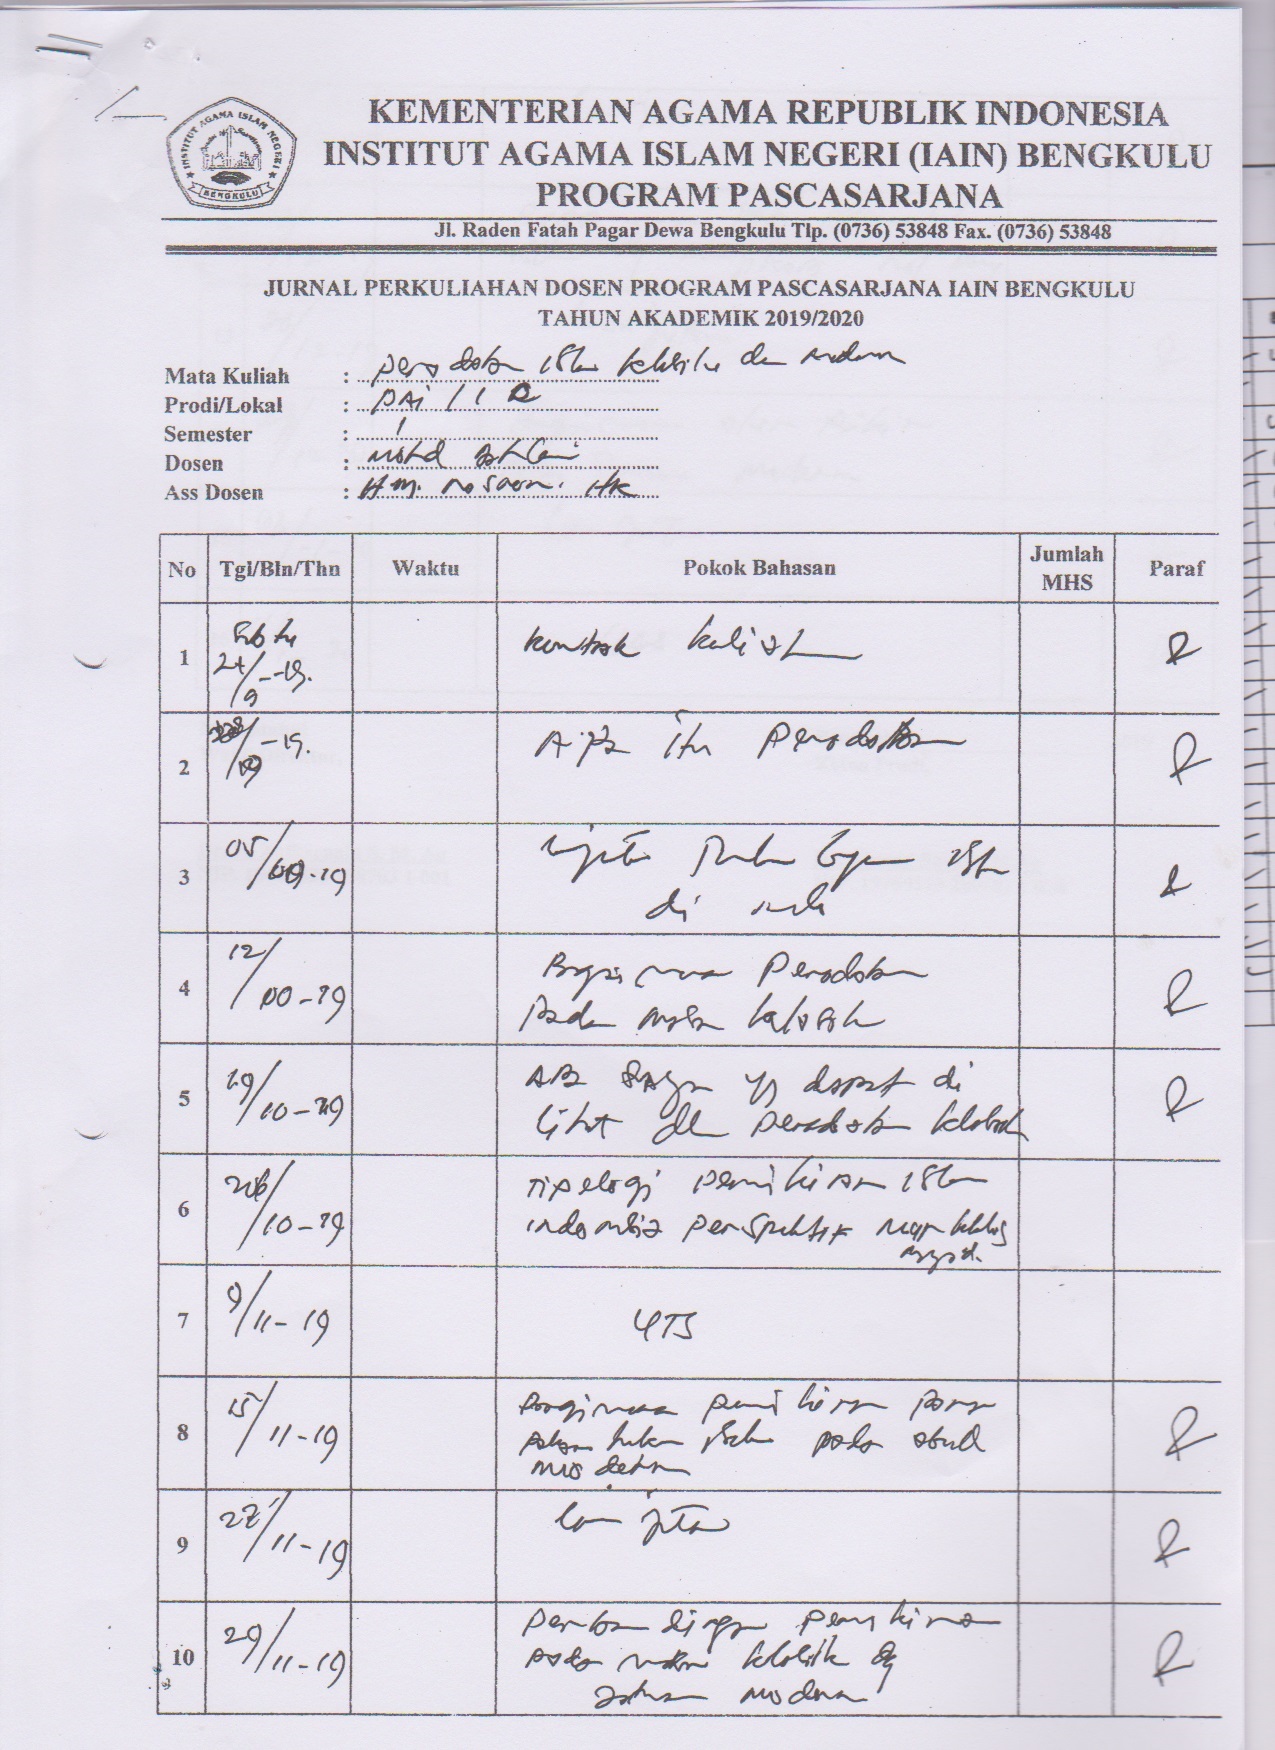 INSTITUT AGAMA ISLAM NEGERI
BENGKULU
KEMENTERIAN AGAMA REPUBLIK INDONESIA
INSTITUT AGAMA ISLAM NEGERI (IAIN) BENGKULU
PROGRAM PASCASARJANA
Jl. Raden Fatah Pagar Dewa Bengkulu Tlp. (0736) 53848 Fax. (0736) 53848
JURNAL PERKULIAHAN DOSEN PROGRAM PASCASARJANA IAIN BENGKULU
TAHUN AKADEMIK 2019/2020
Mata Kuliah : Peradaban Islam klasik dan modern
Prodi/Lokal : PAI / 1 B
Semester : 1
Dosen : Mohd
Ass Dosen : HM.
No Tgl/Bln/Thn Waktu Pokok Bahasan Jumlah MHS Paraf
1 Sabtu kontrak kuliah
2 Apa itu Peradaban
3 di
4 12/ Bagaimana Peradaban
pada masa klasik
5 19/10-19 Apa saja yg dapat di
lihat dlm peradaban klasik
6 26/10-19 Tipologi pemikiran Islam
Indonesia perspektif
7 9/11-19 UTS
8 15/11-19 Bagaimana pemikiran para
pada abad
9 22/11-19 lanjutan
10 29/11-19 Perbandingan pemikiran
pada klasik dg
zaman modern